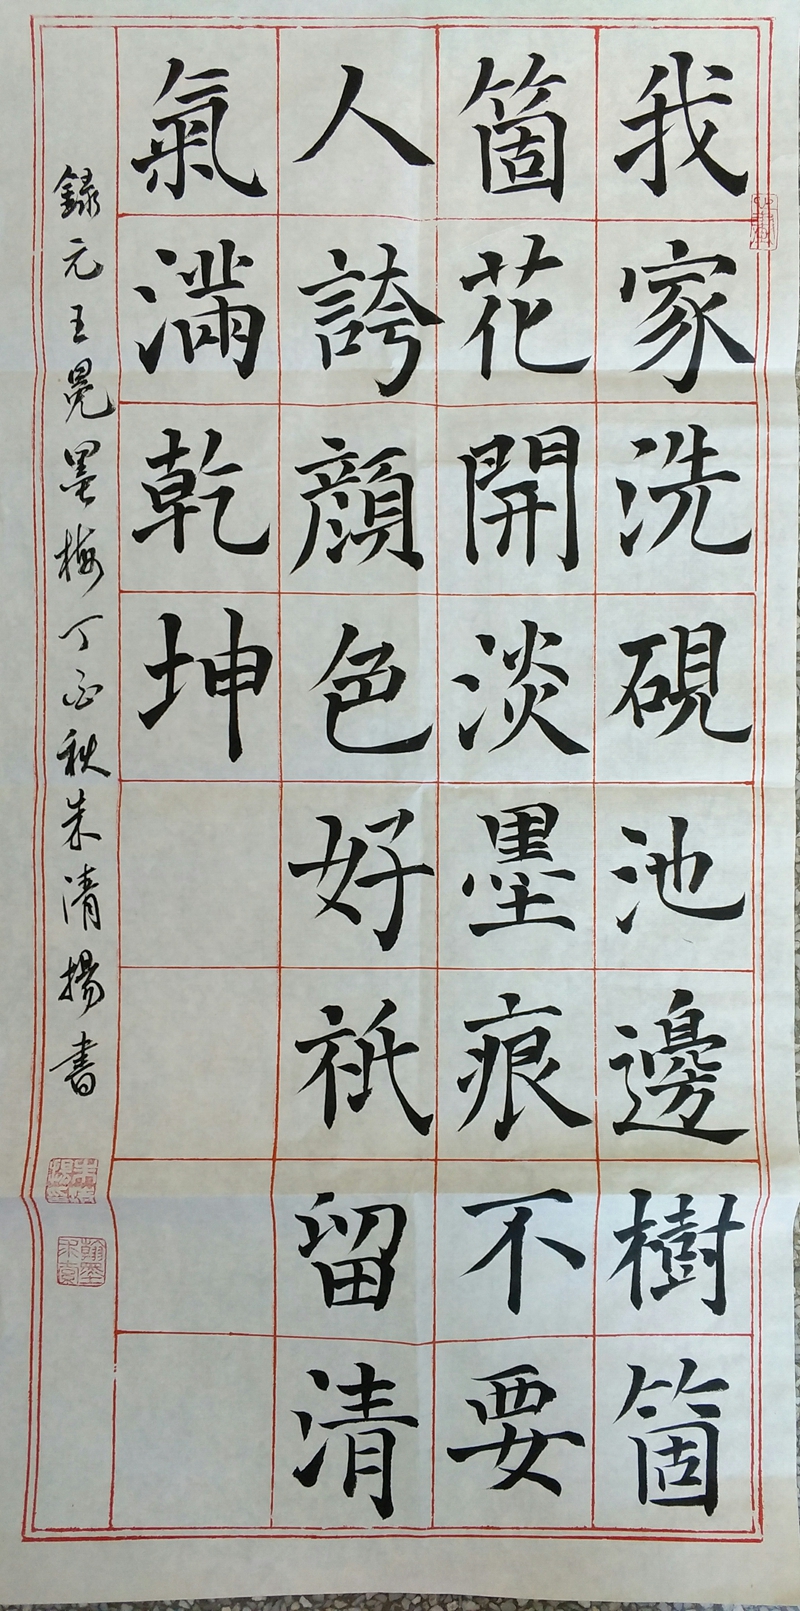 我家洗硯池邊樹箇
箇花開淡墨痕不要
人誇顔色好祇留清
氣滿乾坤
録元王冕墨梅丁酉秋朱清揚書